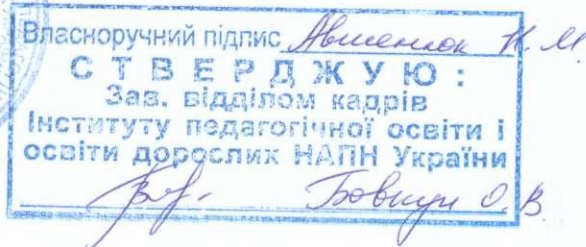 Власноручний підпис Авшенюк Н. М.
СТВЕРДЖУЮ:
Зав. відділом кадрів
Інституту педагогічної освіти і
освіти дорослих НАПН України
Бовкун О. В.